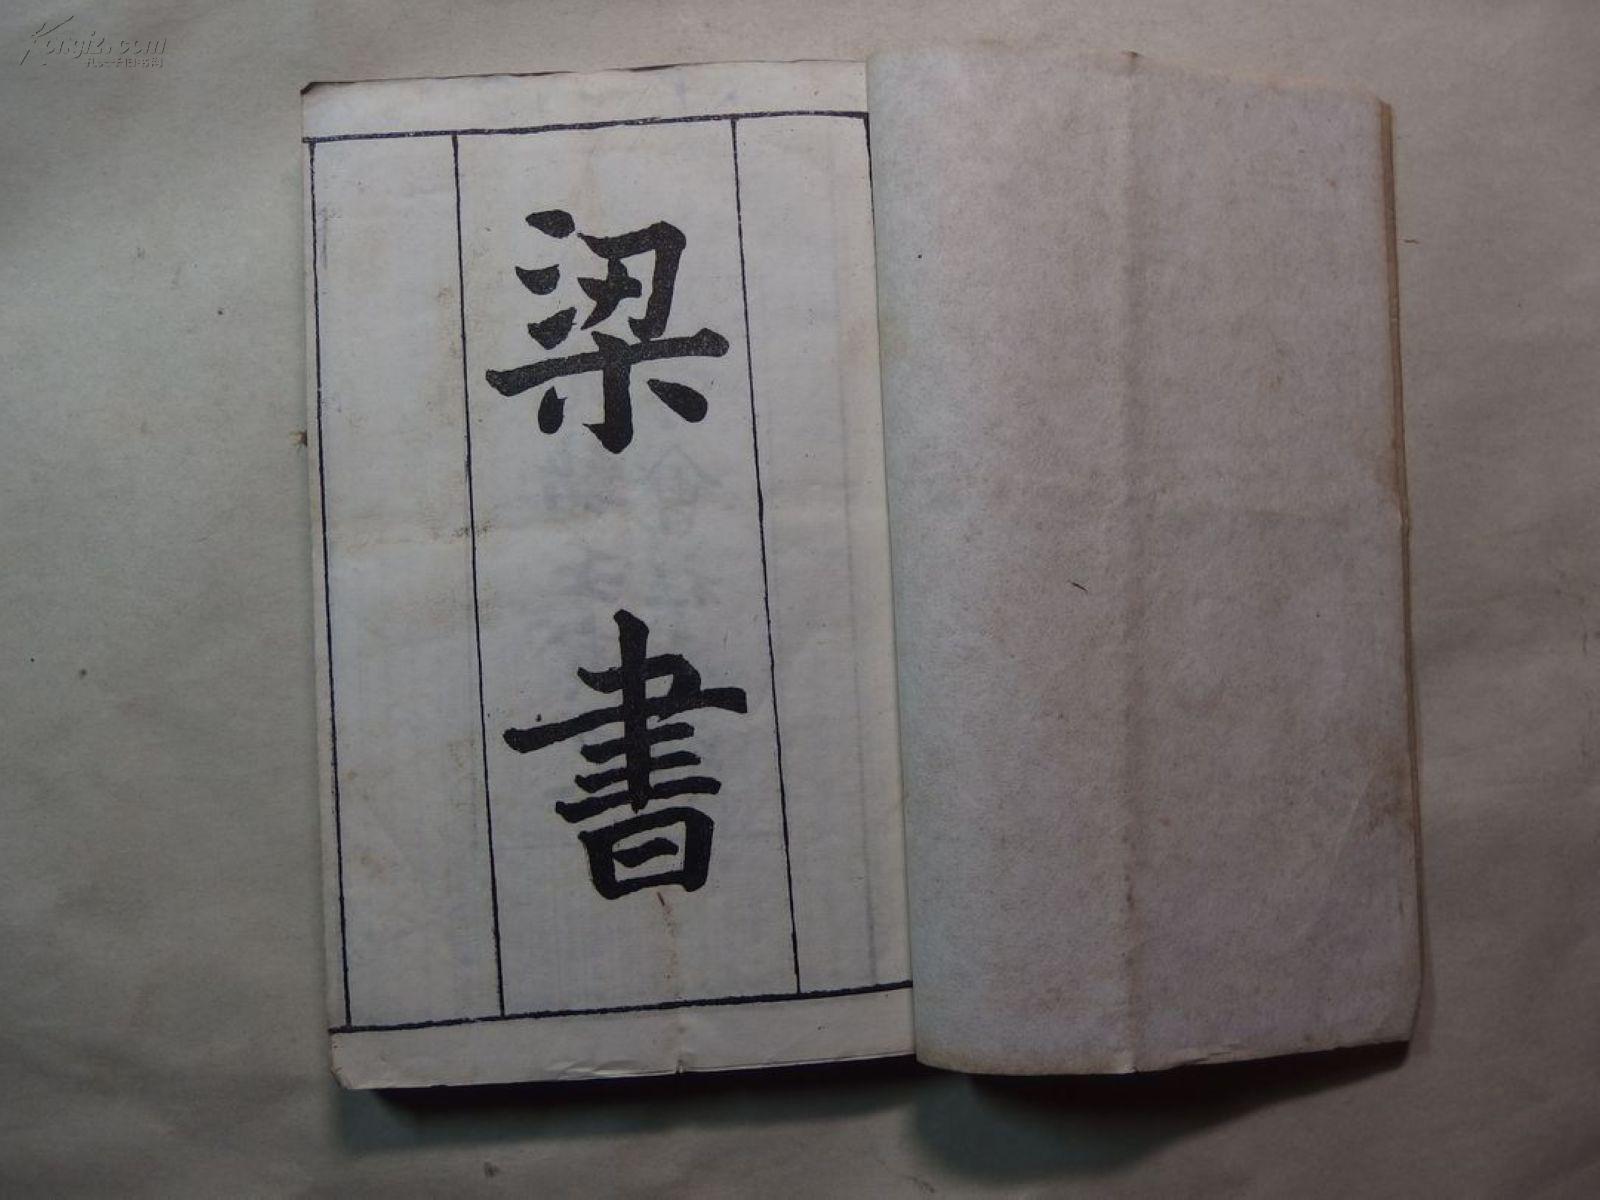 Kongfz.com
孔夫子旧书网
梁書